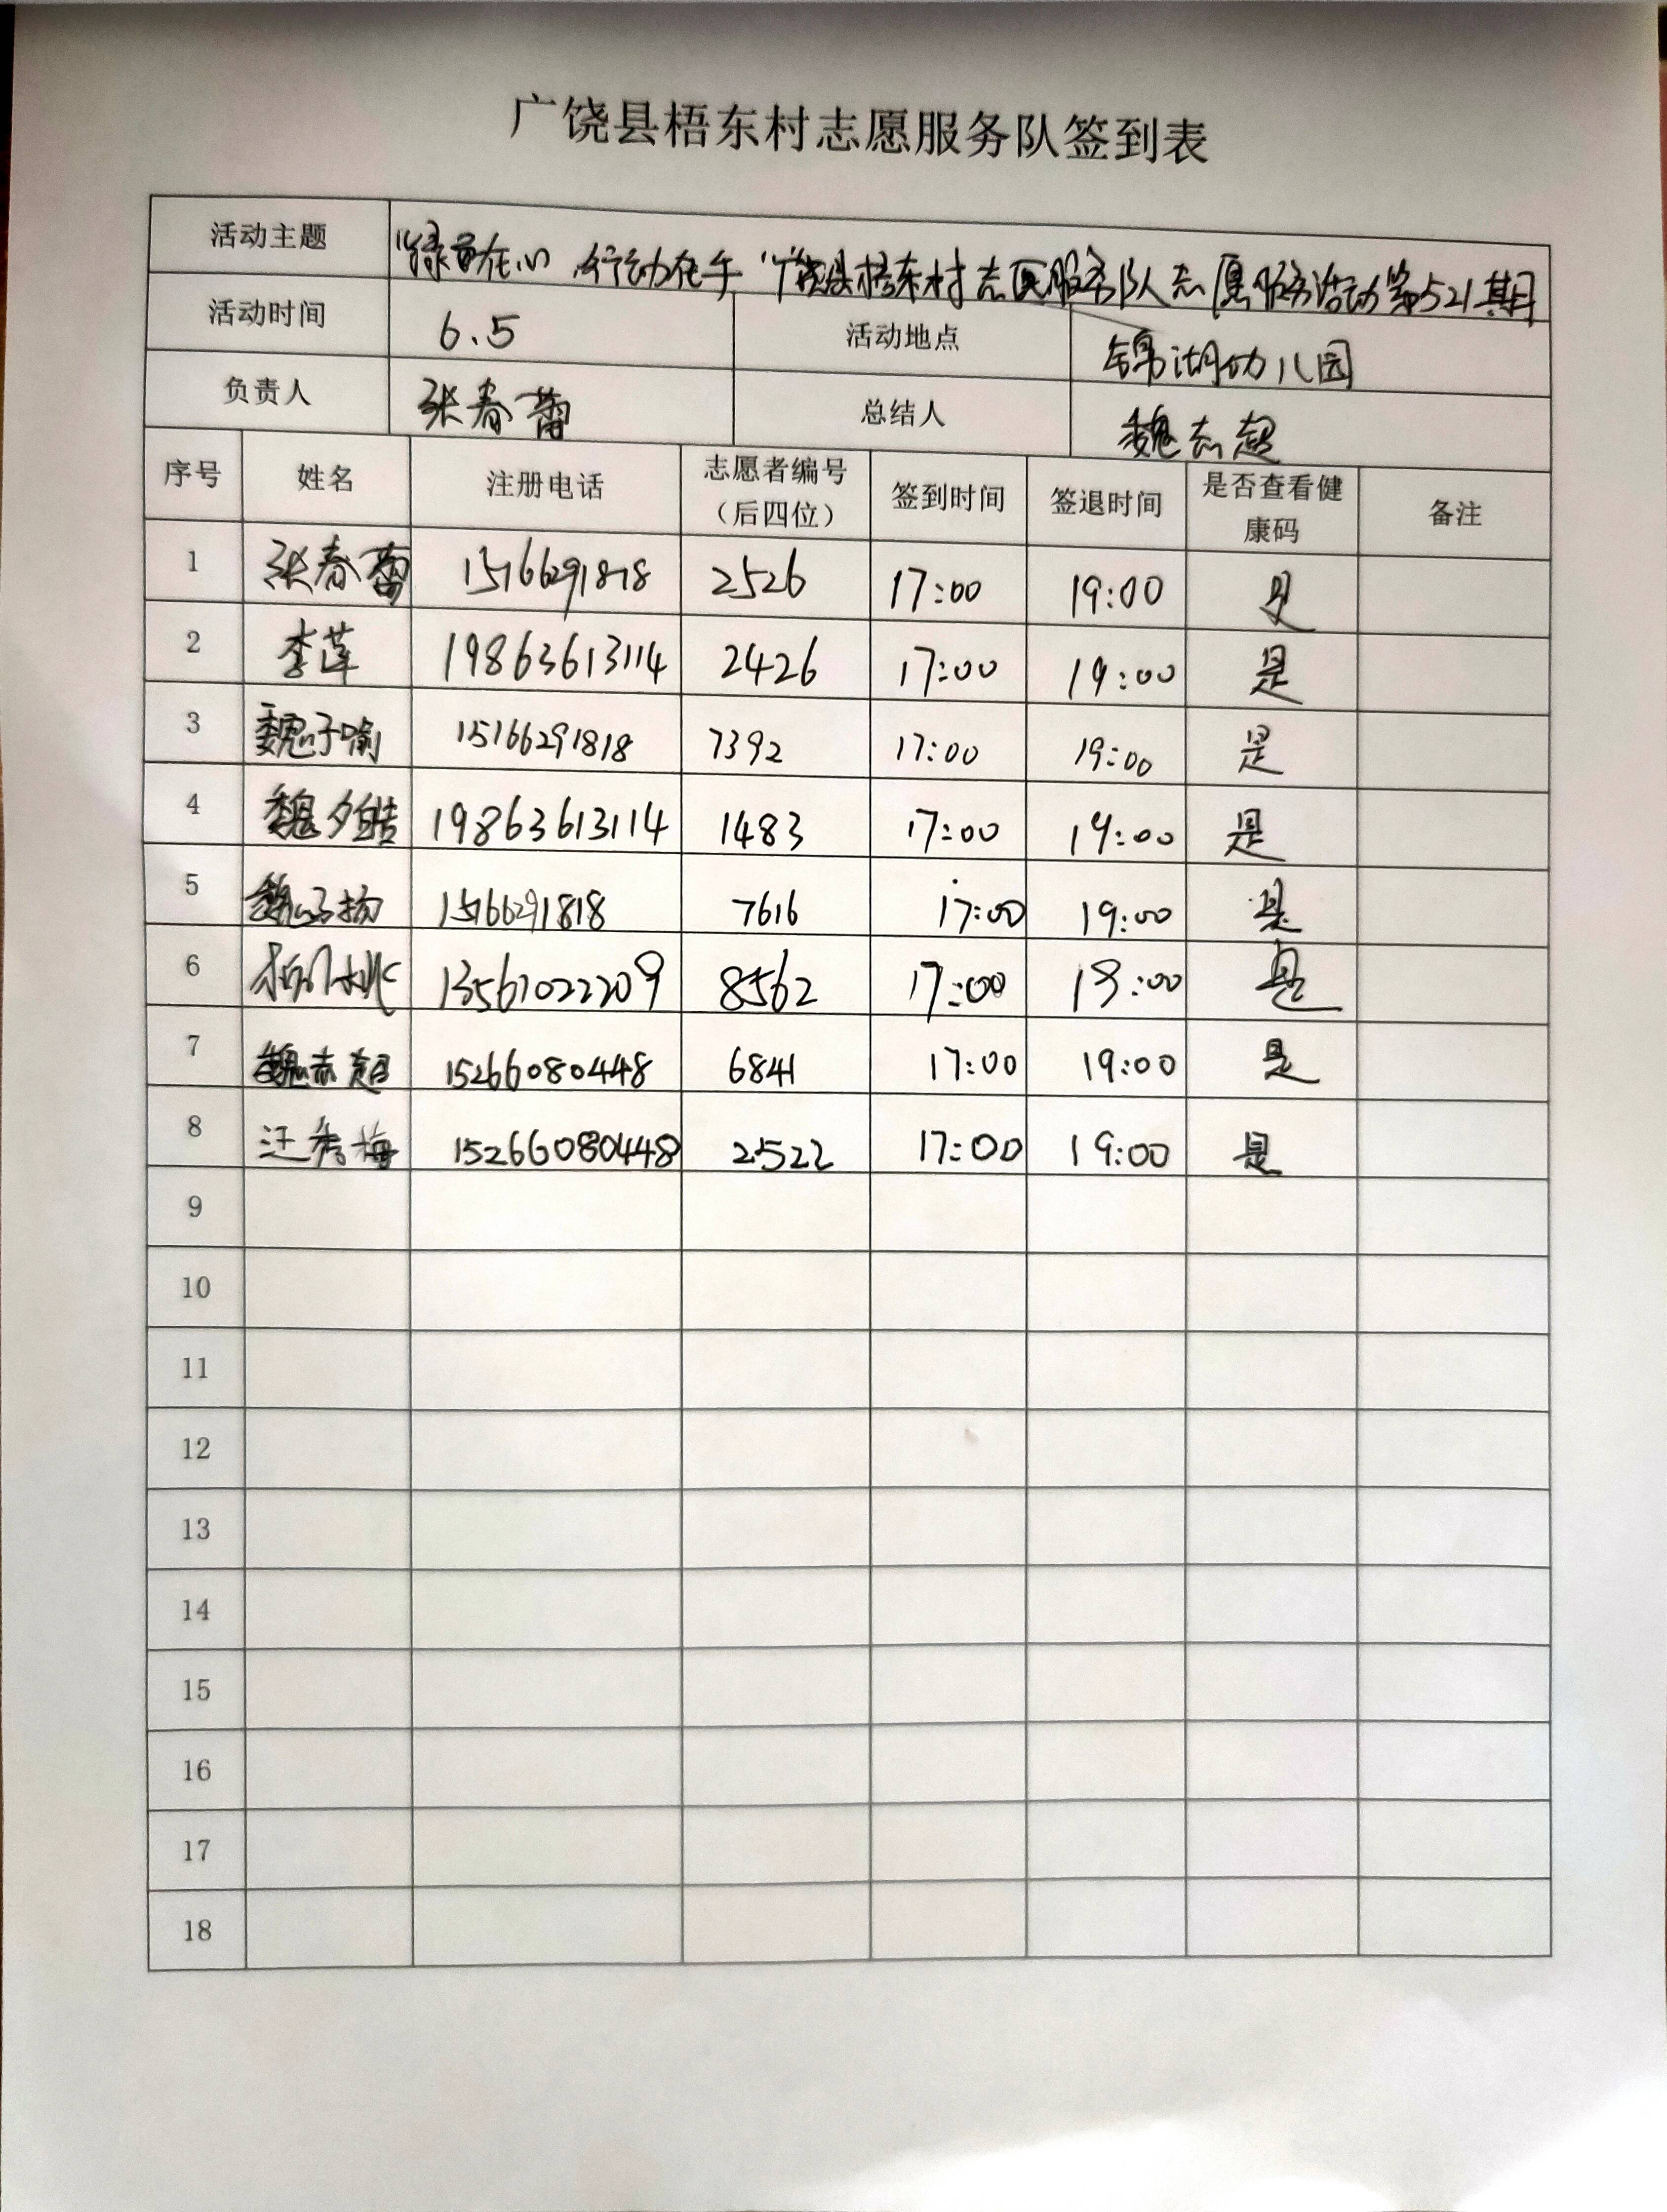 广饶县梧东村志愿服务队签到表
活动主题 "绿意在心,行动在手"广饶县梧东村志愿服务队志愿服务活动第521期
活动时间 6.5 活动地点 锦湖幼儿园
负责人 张春蕾 总结人 魏志超
序号 姓名 注册电话 志愿者编号(后四位) 签到时间 签退时间 是否查看健康码 备注
1 张春蕾 15166291818 2526 17:00 19:00 是
2 李莲 19863613114 2426 17:00 19:00 是
3 魏子喻 15166291818 7392 17:00 19:00 是
4 魏夕皓 19863613114 1483 17:00 19:00 是
5 魏子扬 15166291818 7616 17:00 19:00 是
6 13561022209 8562 17:00 19:00 是
7 魏志超 15266080448 6841 17:00 19:00 是
8 汪秀梅 15266080448 2522 17:00 19:00 是
9
10
11
12
13
14
15
16
17
18